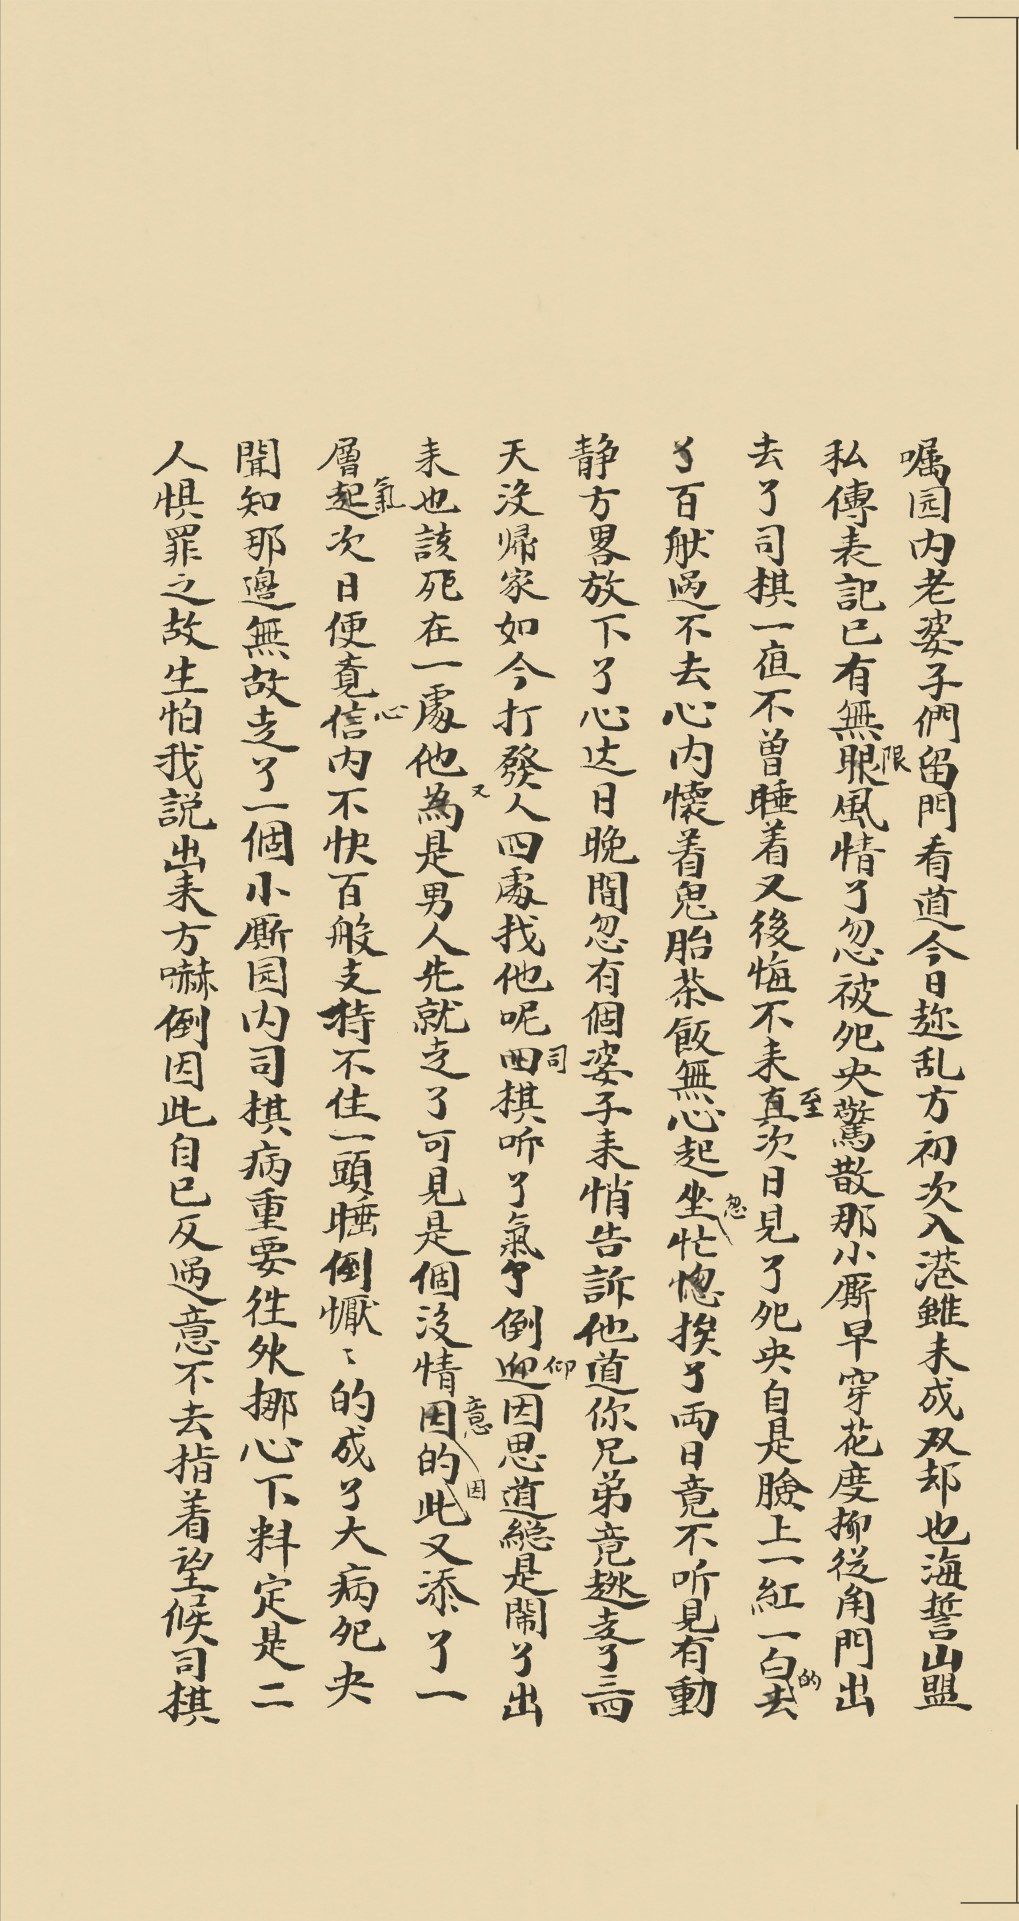 嘱园内老婆子們留門看道今日趂乱方初次入港雖未成双却也海誓山盟
私傳表記已有無眼限風情了忽被夗央驚散那小厮早穿花度柳従角門出
去了司棋一直不曾睡着又後悔不来真至次日見了夗央自是臉上一紅一白去的
了百般過不去心内懷着鬼胎茶飯無心起坐忙惚忽挨了両日竟不听見有動
静方畧放下了心这日晚間忽有個婆子来悄告訴他道你兄弟竟逃走了三四
天沒帰家如今打發人四處找他呢四司棋听了氣個倒迎仰因思道縂是閙了出
来也該死在一處他為又是男人先就走了可見是個沒情因意的此因又添了一
層起氣次日便竟信心内不快百般支持不住一頭睡倒懨〻的成了大病夗央
聞知那邊無故走了一個小厮园内司棋病重要徃外挪心下料定是二
人惧罪之故生怕我説出来方嚇倒因此自已反過意不去指着望候司棋